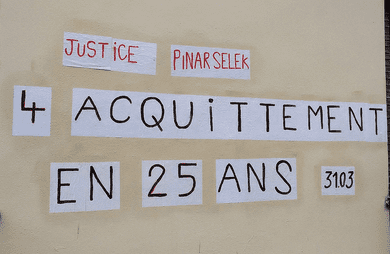 JUSTICE PINAR SELEK
4 ACQUITTEMENT
EN 25 ANS 31.03